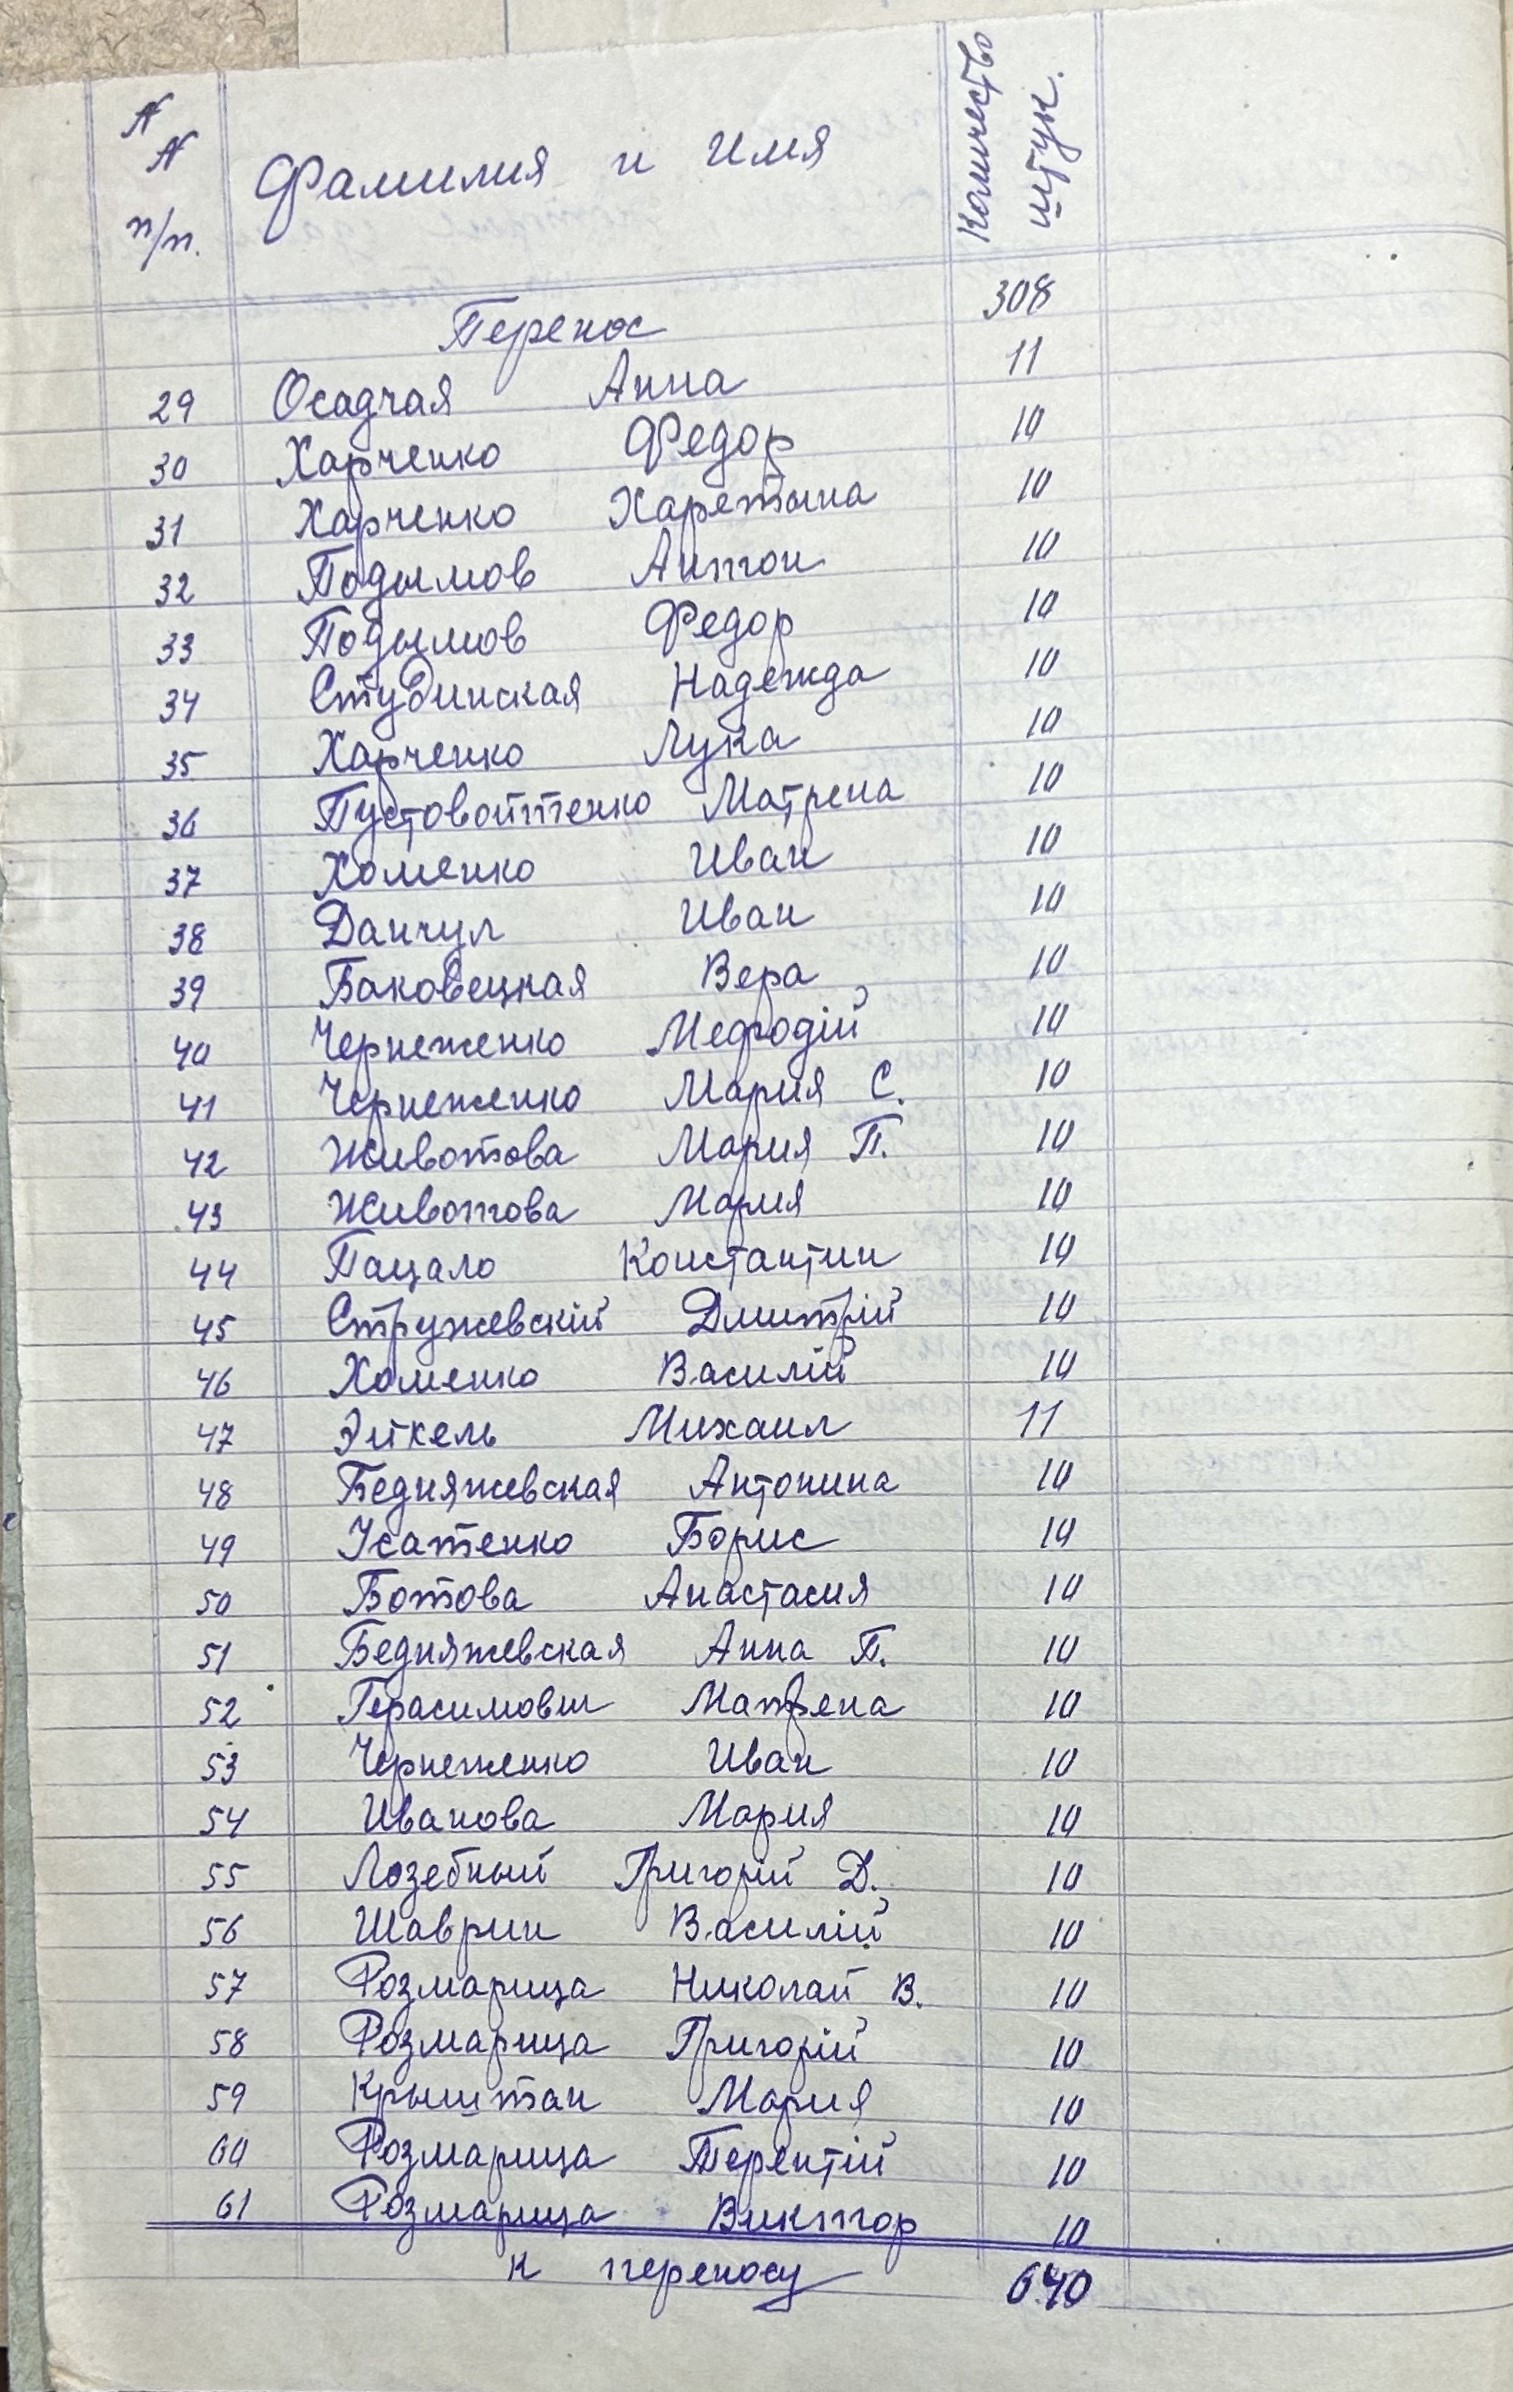 N N п/п. Фамилия и имя Количество штук.
Перенос 308
29 Осадчая Анна 11
30 Харченко Федор 10
31 Харченко Харетына 10
32 Подымов Антон 10
33 Подымов Федор 10
34 Студинская Надежда 10
35 Харченко Лука 10
36 Пустовойтенко Матрена 10
37 Хоменко Иван 10
38 Данчул Иван 10
39 Баковецкая Вера 10
40 Чернеженко Мефодій 10
41 Чернеженко Мария С. 10
42 Животова Мария П. 10
43 Животова Мария 10
44 Пацало Константин 10
45 Стружевскій Дмитрій 10
46 Хоменко Василій 10
47 Эйкель Михаил 11
48 Бедняжевская Антонина 10
49 Усатенко Борис 10
50 Ботова Анастасия 10
51 Бедняжевская Анна П. 10
52 Герасимовш Матрена 10
53 Чернеженко Иван 10
54 Иванова Мария 10
55 Лозебный Григорій Д. 10
56 Шаврин Василій 10
57 Розмарица Николай В. 10
58 Розмарица Григорій 10
59 Крыштан Мария 10
60 Розмарица Терентій 10
61 Розмарица Виктор 10
к переносу 640